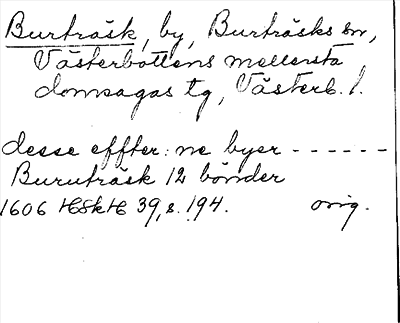 Burträsk, by, Burträsks sn,
Västerbottens mellersta
domsagas tg, Västerb. l.
desse effter: ne byer ------
Buruträsk 12 bönder
1606 HSkH 39, s. 194. orig.